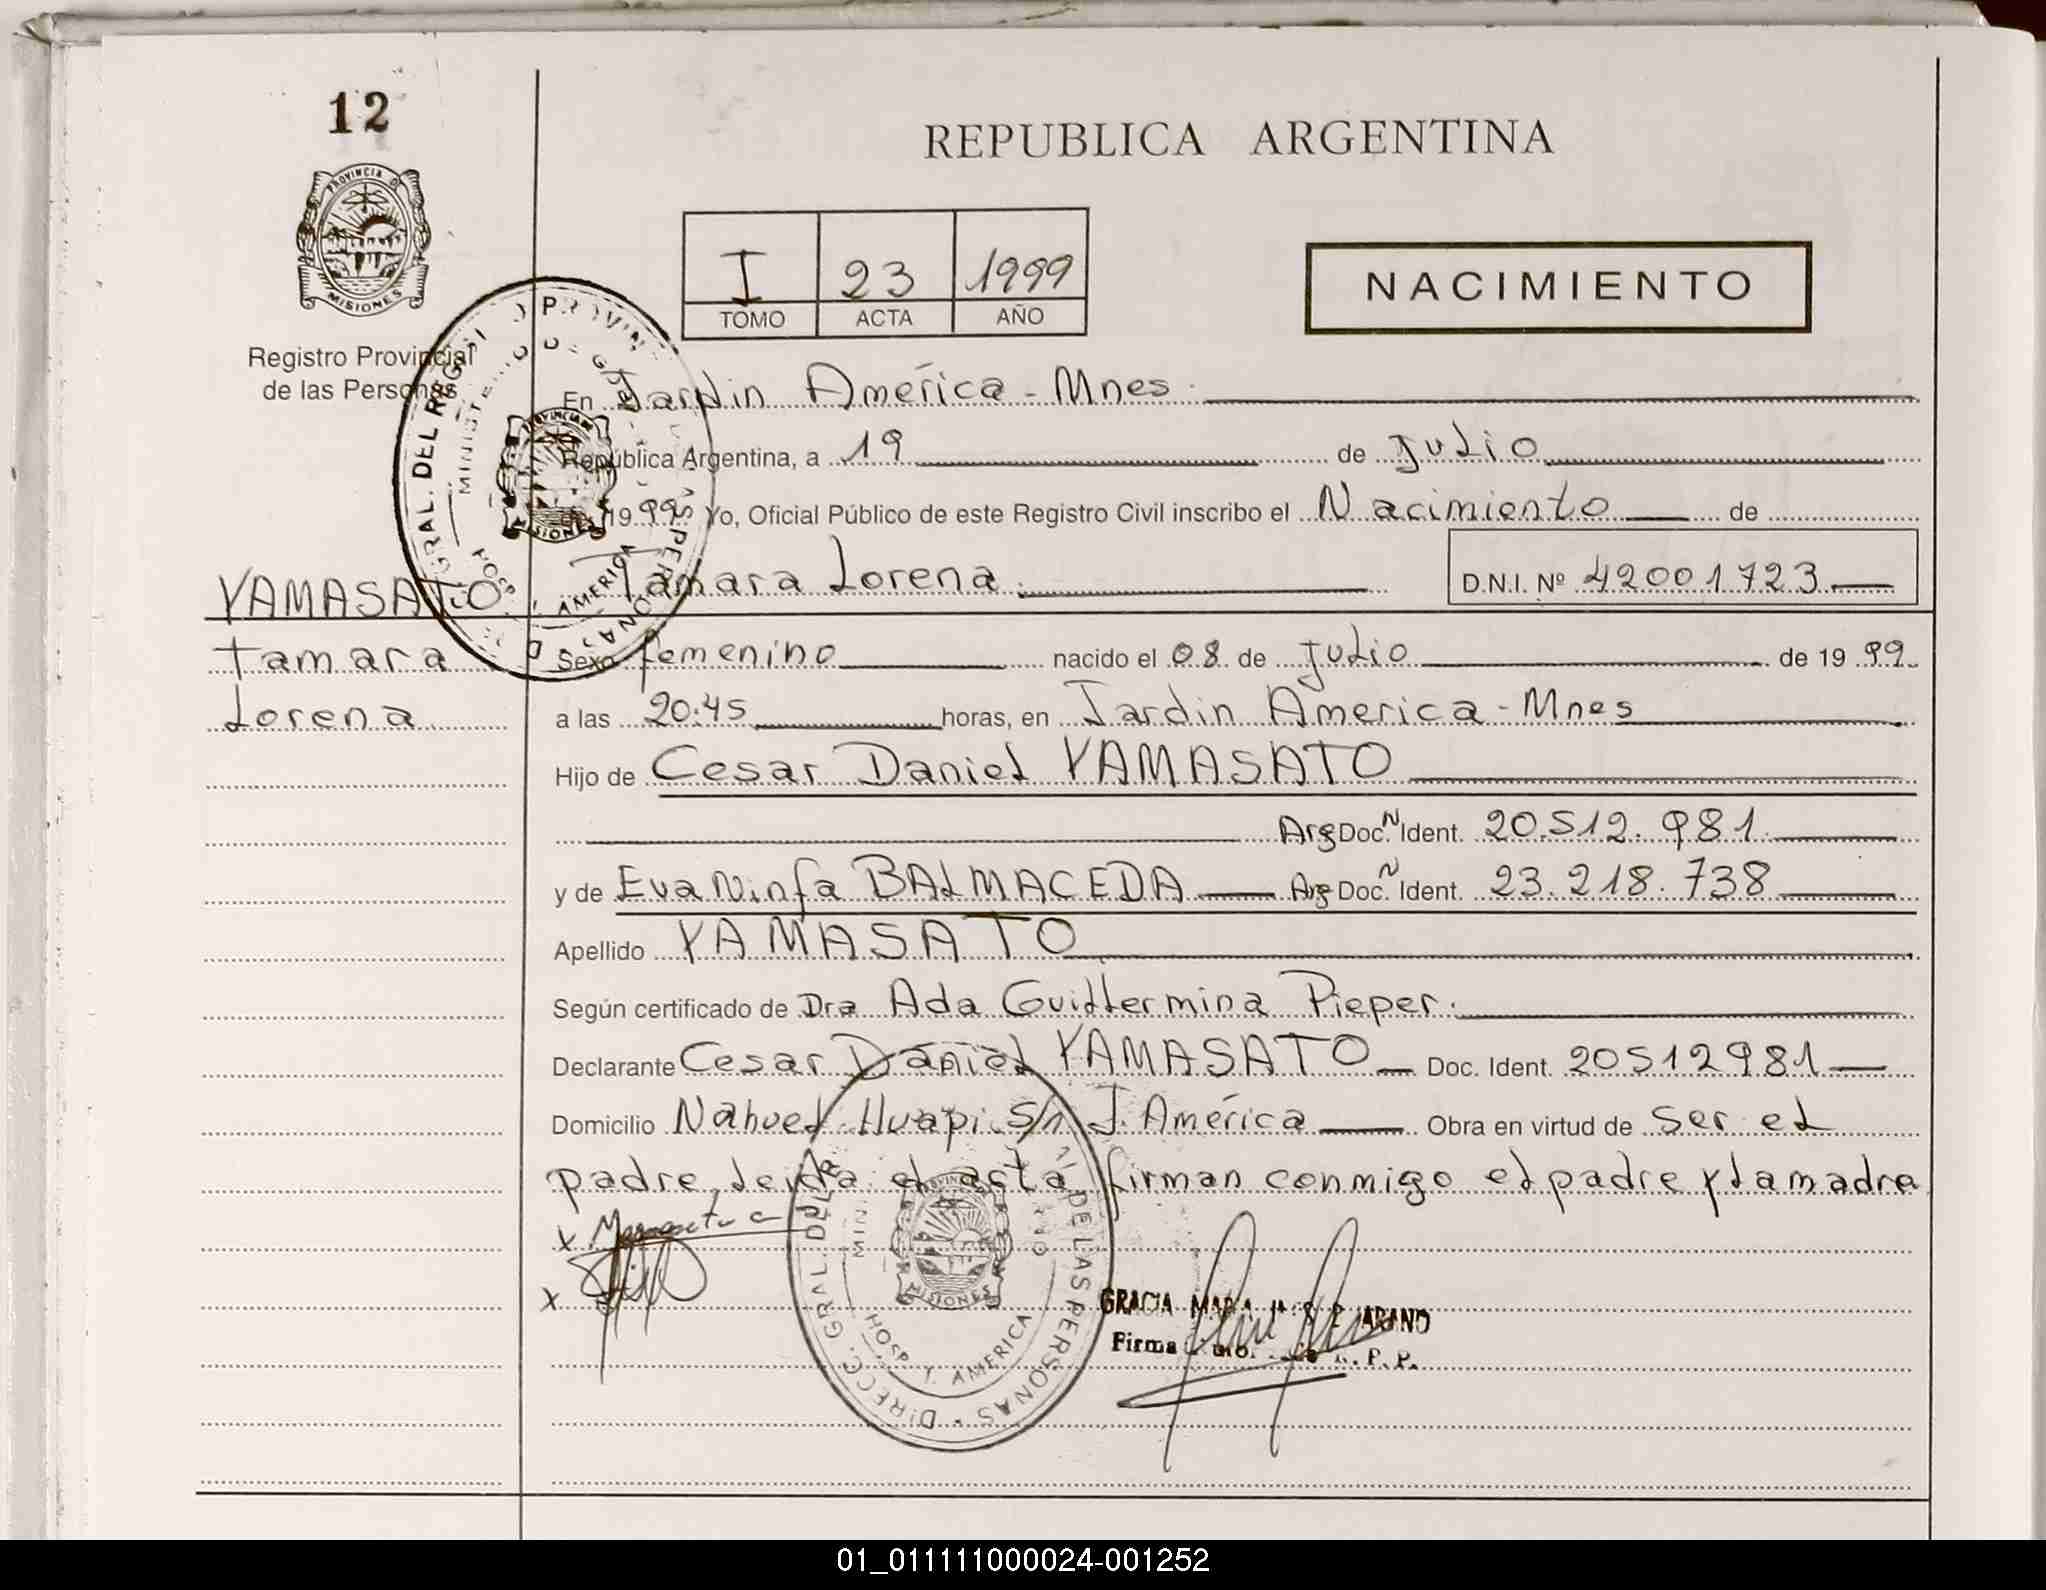 12
PROVINCIA D
MISIONES
Registro Provincial
de las Personas
REPUBLICA ARGENTINA
I 23 1999
TOMO ACTA AÑO
NACIMIENTO
En Jardin América - Mnes.
República Argentina, a 19 de Julio
1999 Yo, Oficial Público de este Registro Civil inscribo el Nacimiento de
Tamara Lorena. D.N.I. Nº 42001723
YAMASATO
Tamara
Lorena
Sexo femenino nacido el 08 de Julio de 1999
a las 20:45 horas, en Jardin America - Mnes
Hijo de Cesar Daniel YAMASATO
Arg Doc. N Ident. 20.512.981.
y de Eva Ninfa BALMACEDA Arg Doc. N Ident. 23.218.738
Apellido YAMASATO
Según certificado de Dra Ada Guillermina Pieper.
Declarante Cesar Daniel YAMASATO Doc. Ident. 20512981
Domicilio Nahuel Huapi s/n J. América Obra en virtud de ser el
padre, leida el acta firman conmigo el padre y la madre
x
x
DIRECC. GRAL. DEL R DE LAS PERSONAS
HOSP. J. AMERICA
MISIONES
GRACIA MARIA
Firma R. P. P.
01_011111000024-001252